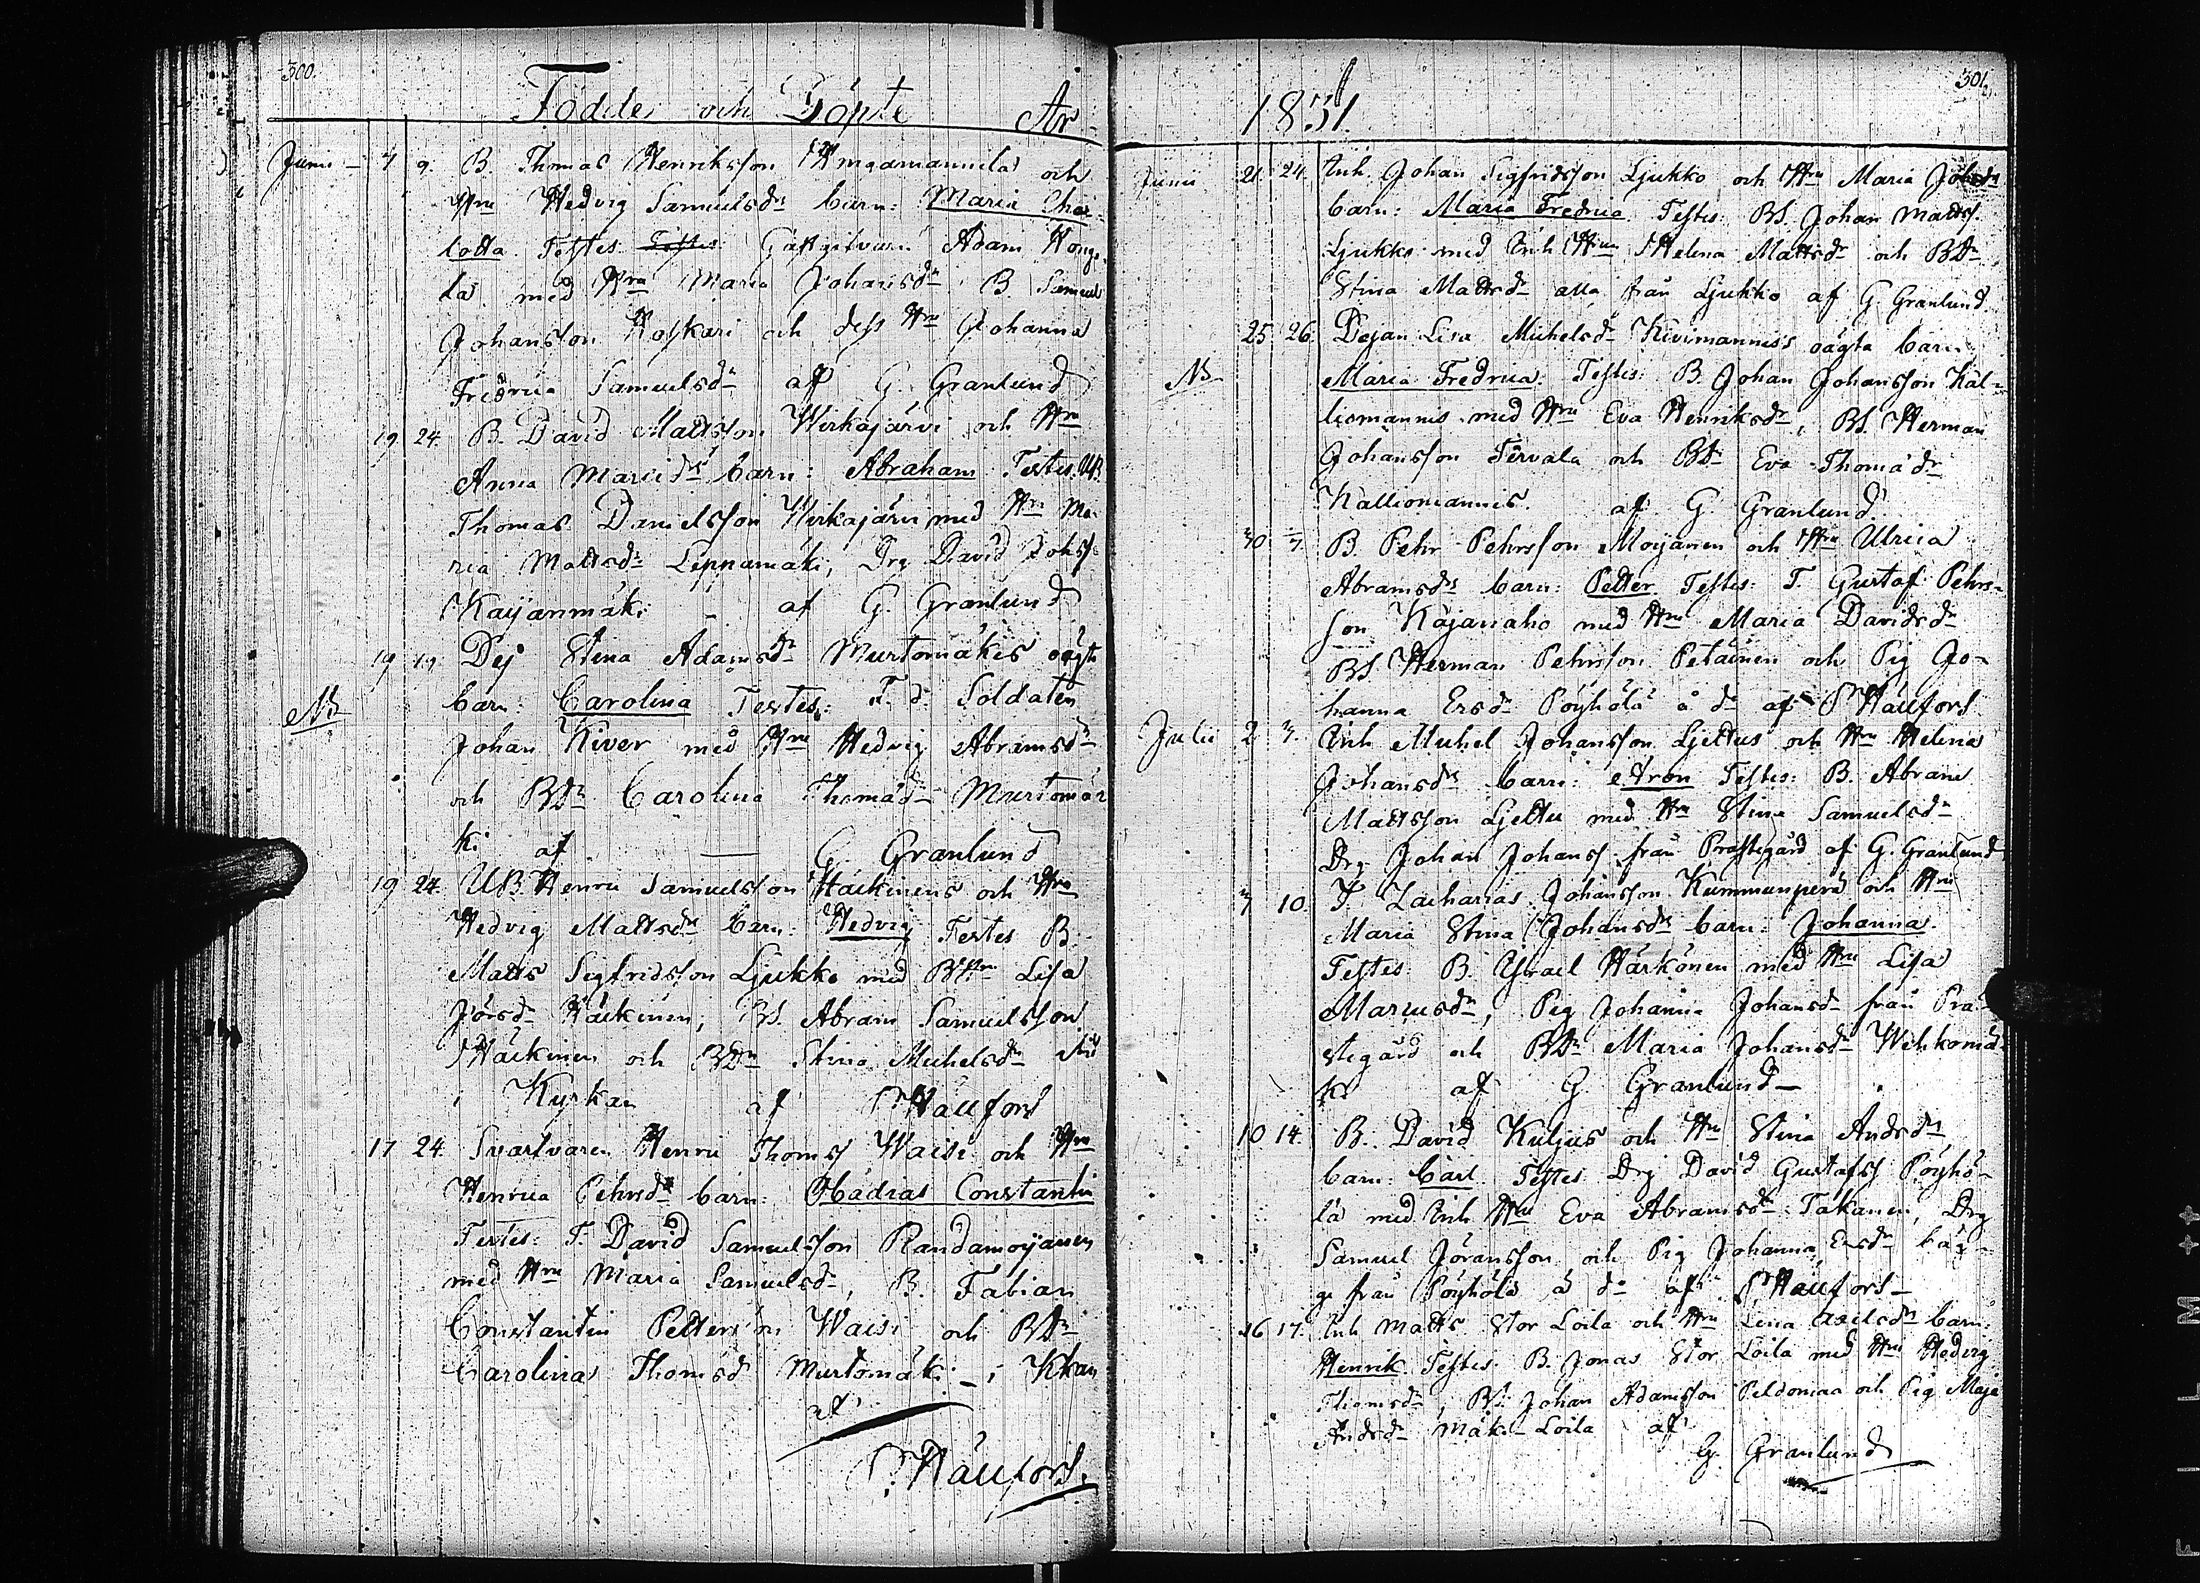 300.
Födde och Döpte År
Junii 7 9. B. Thomas Henriksson Hingamannila och
Hru Hedvig Samuelsdrs barn: Maria Char-
lotta. Testes Testes Gästgifvarn Adam Honga-
la med Hru Maria Johansdr B. Samuel
Johansson Koskari och dess Hru Johanna
Fredrica Samuelsdr af G. Granlund
19 24. B. David Mattsson Wirkajärvi och Hru
Anna Marcidrs barn: Abraham Testes. UB.
Thomas Danielsson Wirkajärvi med Hru Ma-
ria Mattsdr Leppamäki, Drg David Johss.
Kaijanmäki af G. Granlund
19 19 Dej Stina Adamsdr Murtomäkis oägta
NB barn: Carolina Testes: F. d. Soldaten
Johan Kiver med Hru Hedvig Abramsdr
och BDr Carolina Thomädr Murtomä-
ki af — G. Granlund
19 24. UB. Henric Samuelsson Häckinens och Hru
Hedvig Mattsdrs barn: Hedvig Testes B.
Matts Sigfridsson Ljukko med BHru Lisa
Jörsdr Häckinen, BS. Abram Samuelsson
Häckinen och BDr Stina Michelsdr
i Kyrkan af Hällfors
17 24. Svarfvaren Henric Thomss Waisi och Hru
Henrica Pehrsdrs barn: Obadias Constantin
Testes: T. David Samuelsson Randamoijanen
med Hru Maria Samuelsdr, B. Fabian
Constantin Pettersson Waisi och BDr
Carolina Thomsdr Murtomäki – i Kkan
af
Hällfors.
301.
1831.
Junii 21. 24. Inh. Johan Sigfridsson Ljukko och Hru Maria
barn: Maria Fredrica. Testes: BS. Johan Mattss.
Ljukko med Inh Hru Helena Mattsdr och BDr
Stina Mattsdr alla från Ljukko af G. Granlund.
25 26. Dejan Lisa Michelsdr Kivimannis's oägta barn
NB Maria Fredrica. Testes: B. Johan Johansson Kal-
liomannis med Hru Eva Henriksdr, BS. Herman
Johansson Tervala och BDr Eva Thomädr
Kalliomannis. af G. Granlund.
30 3. B. Pehr Pehrsson Moijanen och Hru Ulrica
Abramsdrs barn: Petter Testes: T. Gustaf Pehrs-
son Kajanaho med Hru Maria Davidsdr
BS. Herman Pehrsson Petäinen och Pig Jo-
hanna Ersdr Pöyhölä å do af Hällfors
Julii 2 3. Inh Michel Johansson Ljettus och Hru Helena
Johansdrs barn: Aron Testes: B. Abram
Mattsson Ljettu med Hru Stina Samuelsdr
Drg Johan Johanss från Prestgård af G. Granlund
7 10. T. Zacharias Johansson Kummunperä och Hru
Maria Stina Johansdrs barn: Johanna.
Testes: B. Israel Härkönen med Hru Lisa
Marcusdr, Pig Johanna Johansdr från Pre-
stegård och BDr Maria Johansdr Wehkomä-
ki af G. Granlund —
10 14. B. David Kuljus och Hru Stina Andsdrs
barn: Carl Testes: Drg David Gustafss Pöyhö-
lä med Inh Hru Eva Abramsdr Takanen, Drg
Samuel Jöransson och Pig Johanna Ersdr båg-
ge från Pöyhölä å do af Hällfors —
16 17. Inh Matts Stor Loila och Hru Lena Axelsdrs barn:
Henrik Testes. B. Jonas Stor Loila med Hru Hedvig
Thomsdr, BS. Johan Adamsson Peldomaa och Pig Maja
Andsdr Mäki-Loila af
G. Granlund
FILM ++